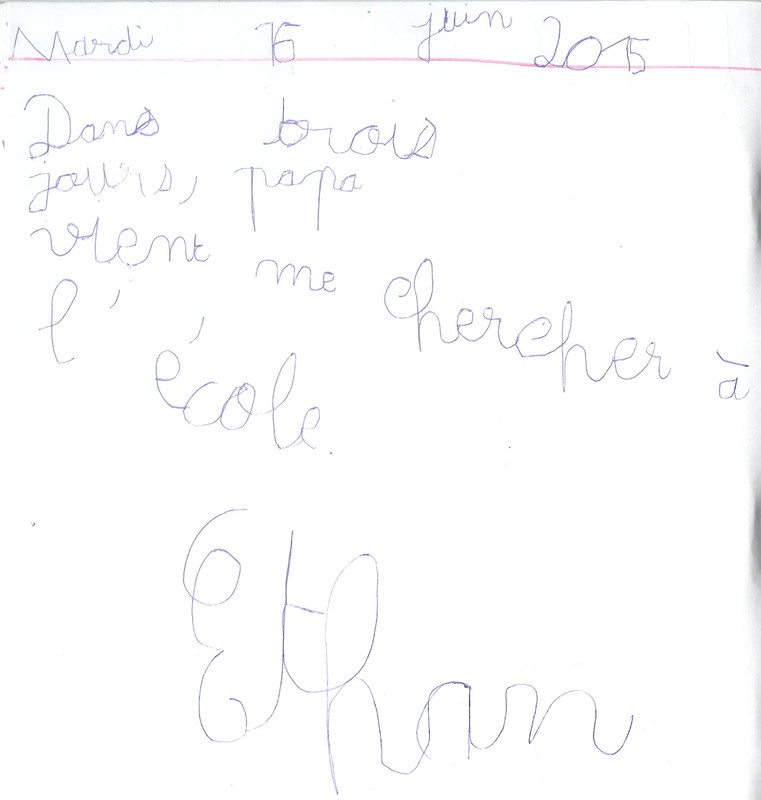 Mardi 16 juin 2015
Dans trois
jours, papa
vient me chercher à
l'école.
Ethan